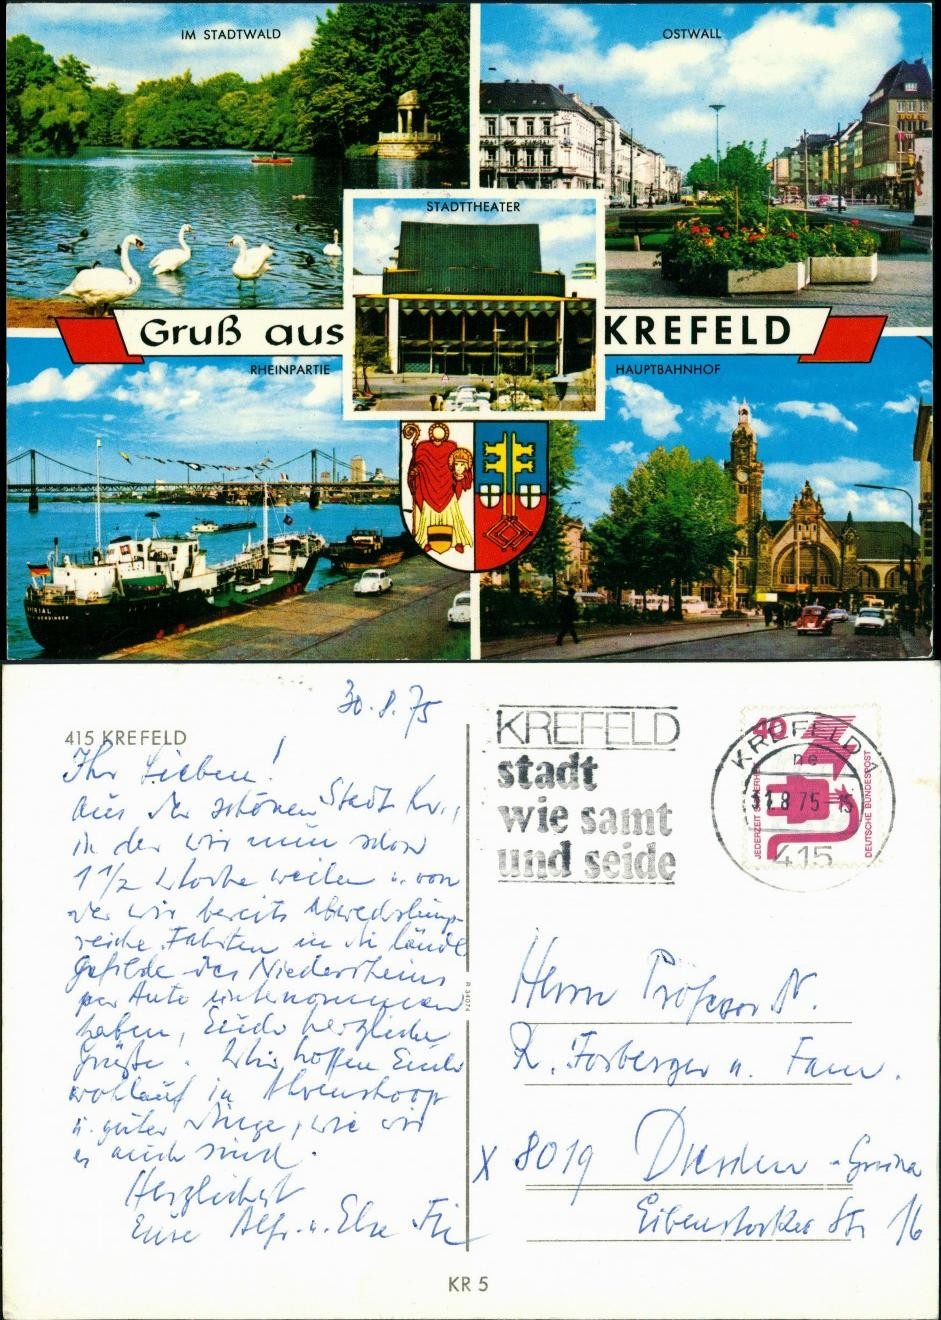 IM STADTWALD
OSTWALL
BOAS
STADTTHEATER
Gruß aus KREFELD
RHEINPARTIE
HAUPTBAHNHOF
30.8.75
415 KREFELD
Ihr Lieben!
Aus der schönen Stadt Kr.,
in der wir nun schon
1 1/2 Woche weilen u. von
der wir bereits Abwechslungs-
reiche Fahrten in die ländl.
Gefilde des Niederrheins
per Auto unternommen
haben, Euch herzliche
Grüße. Wir hoffen Euch
wohlauf in Ahrenshoop
u. guter Dinge, wie wir
es auch sind.
Herzlichst
Eure Alfr. u. Else
R 34074
KREFELD
stadt
wie samt
und seide
KREFELD
415
40
JEDERZEIT SICHERHEIT
DEUTSCHE BUNDESPOST
Herrn Professor Dr.
R. Forberger u. Fam.
X 8019 Dresden-Gruna
Eibenstocker Str. 16
KR 5